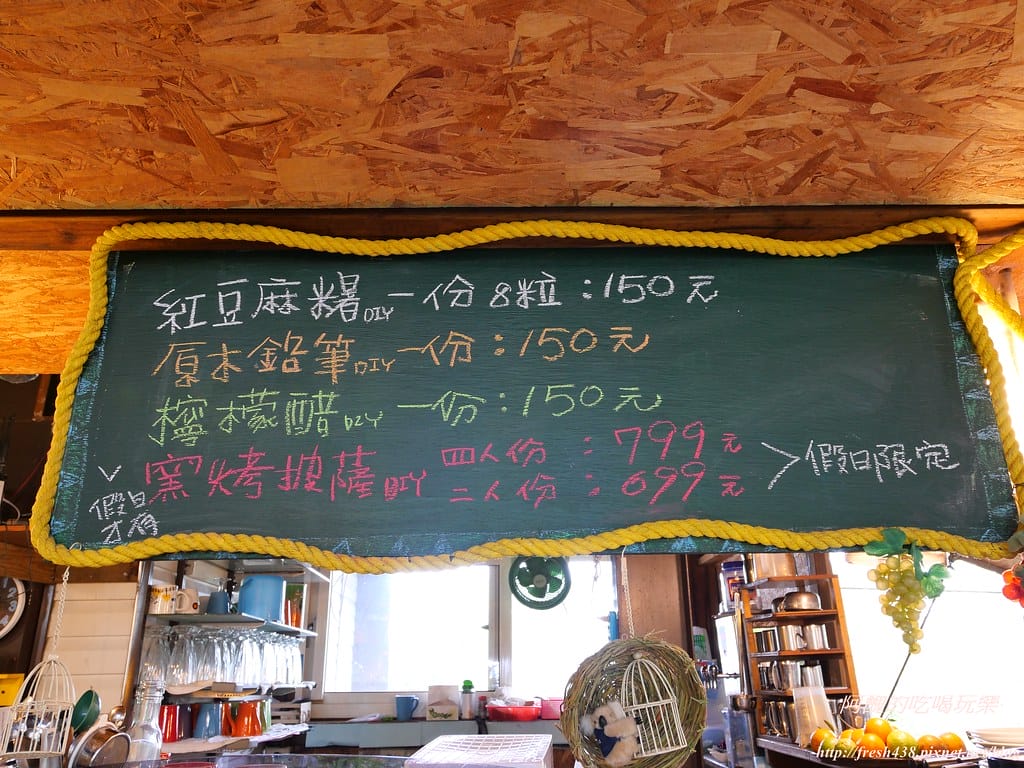 紅豆麻糬DIY一份8粒:150元
原木鉛筆DIY一份:150元
檸檬醋DIY一份:150元
窯烤披薩DIY 四人份 :799元
二人份 :699元
>假日限定
假日
才有
阿輝的吃喝玩樂
http://fresh438.pixnet.net/blog